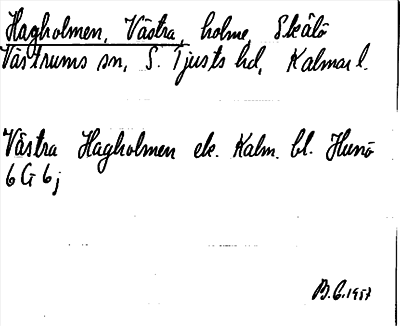 Hagholmen, Västra, holme, Skälö
Västrums sn, S. Tjusts hd, Kalmar l.
Västra Hagholmen ek. Kalm. bl. Hunö
6 G 6 j
B.G. 1957